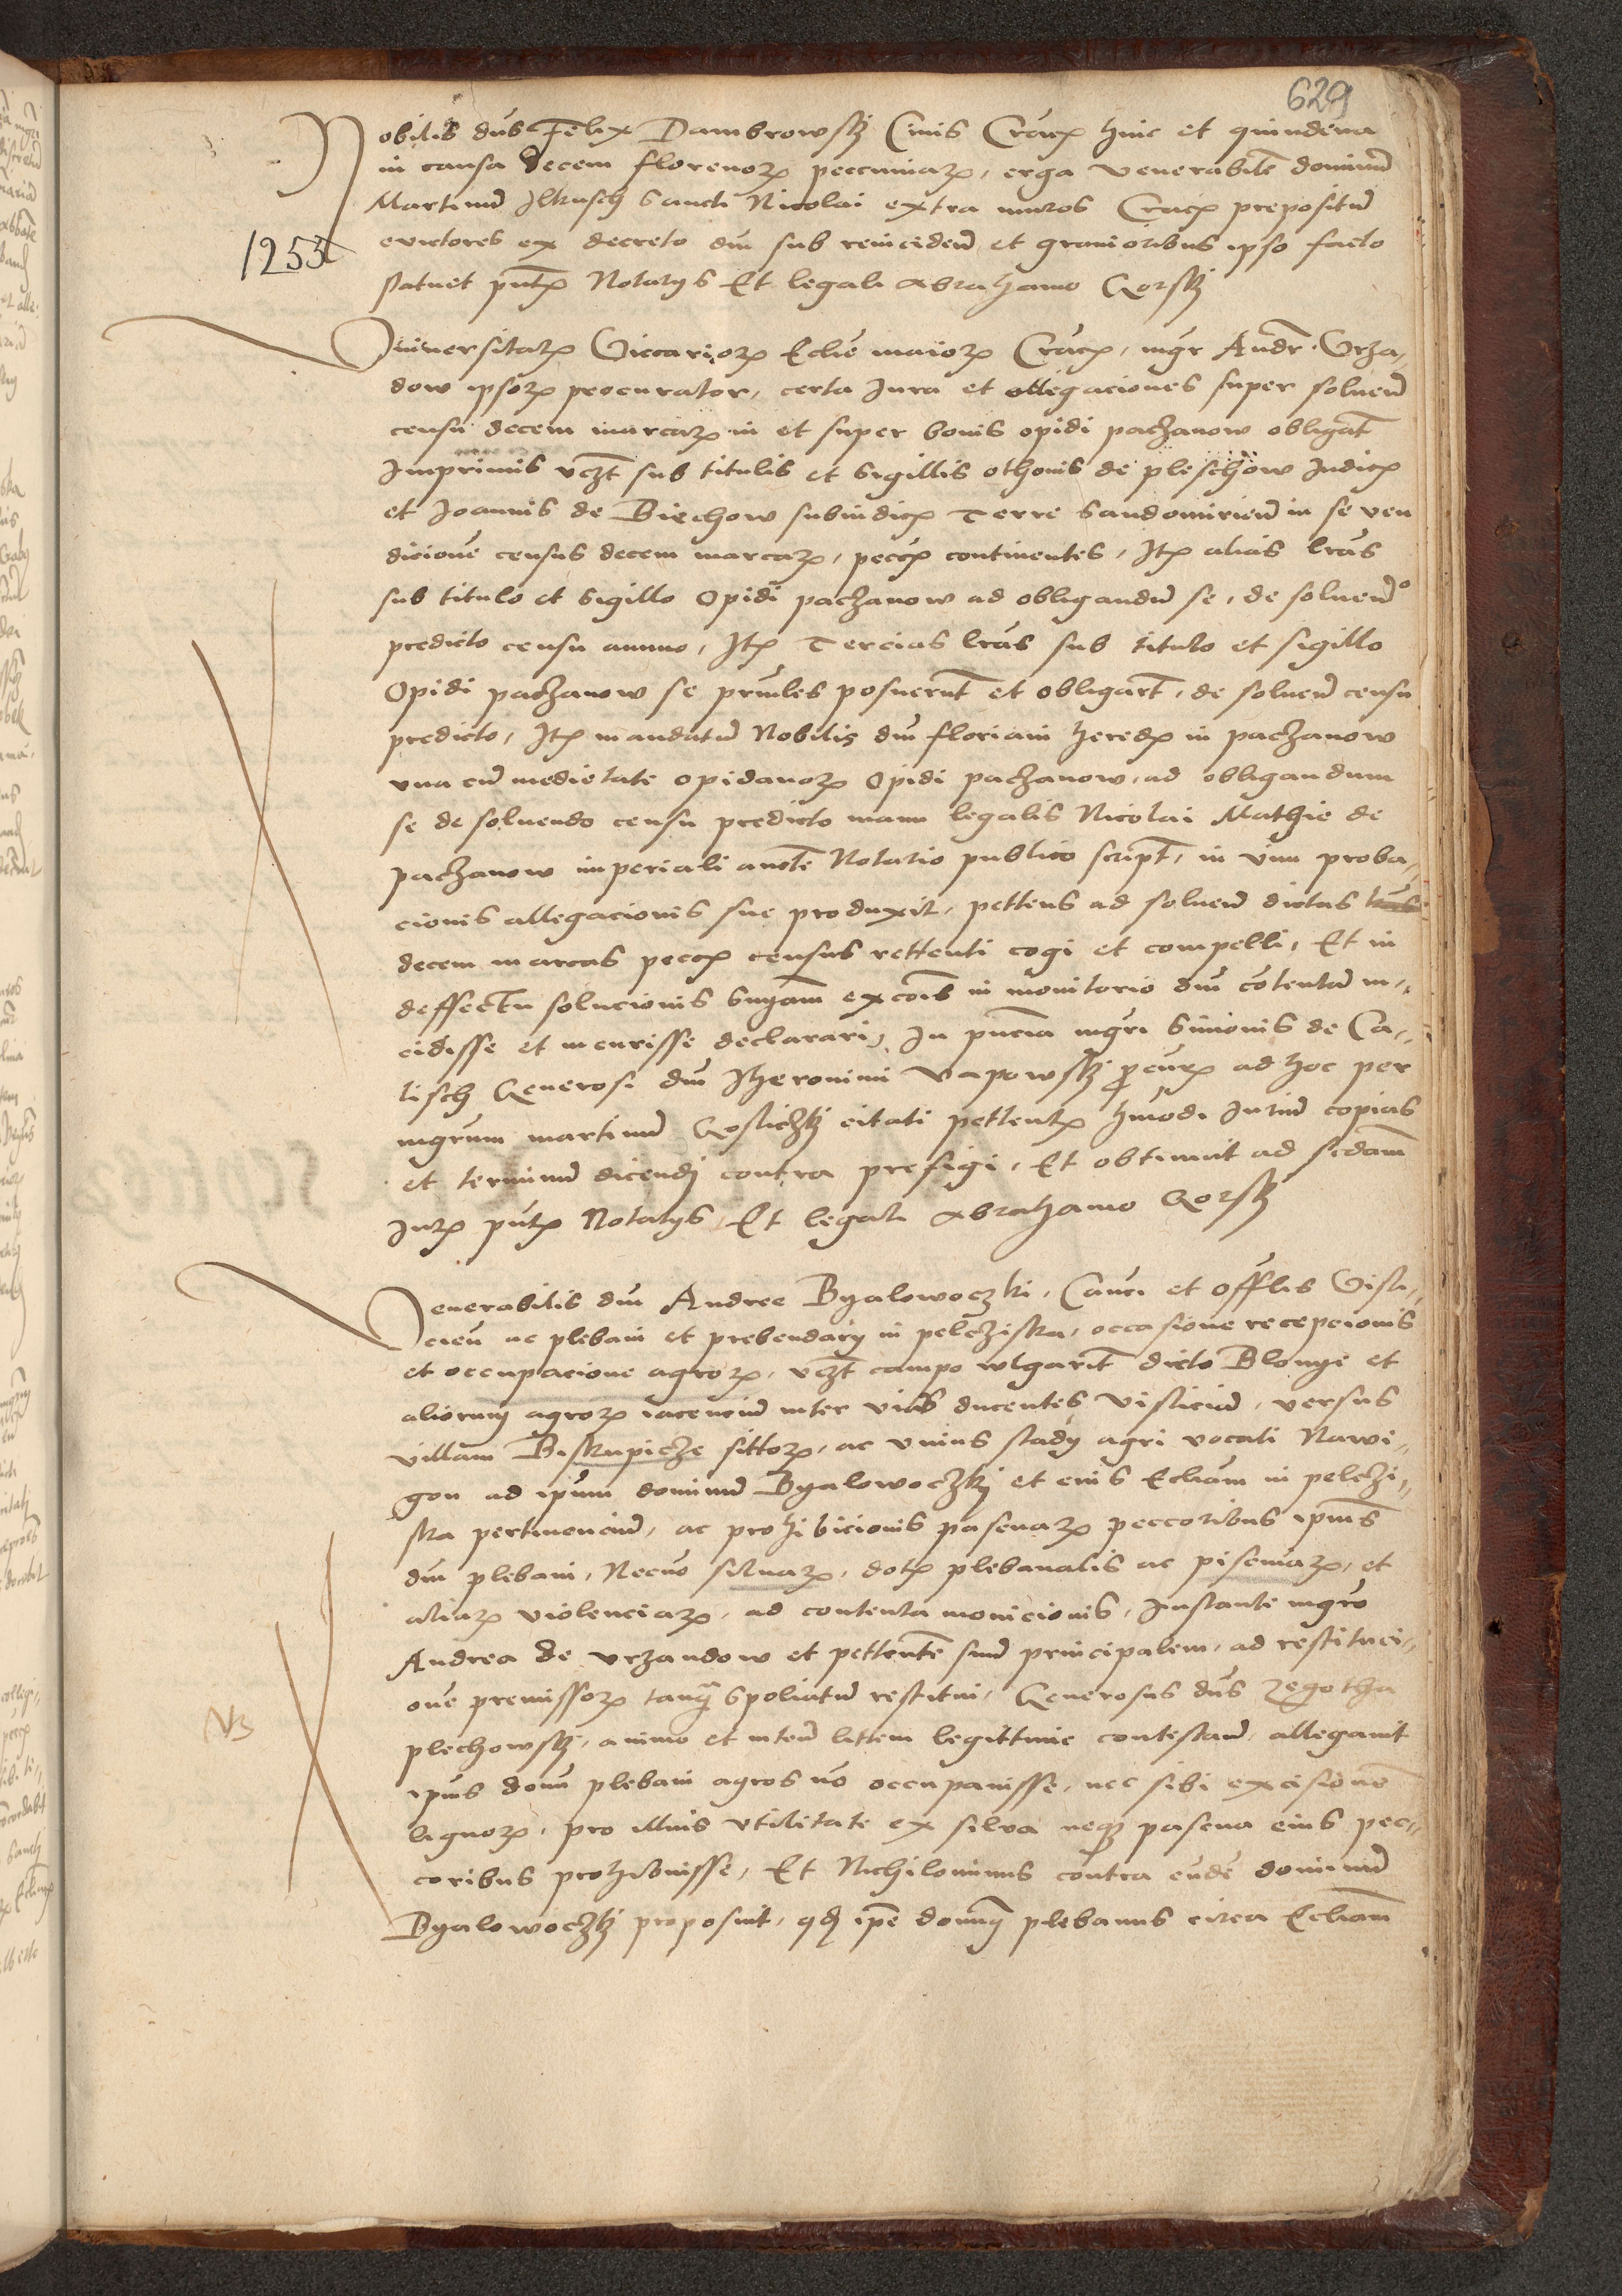 629
Nobilis dns Felix Dambrowskj Civis Cracov hinc et quindena
in causa decem florenorum peccuniarum, erga venerabilem dominum
Martinum Ilkusch Sancti Nicolai extra muros Crac prepositum
evictores ex decreto dni sub reinciden et gravioribus ipso facto
statuet pntibus Notarys Et legali Abrahamo Gorskj
1253
Universitatis Viccariorum Ecclie maioris Crac, mgr Andr Vrza,
dow ipsorum procurator, certa Jura et allegaciones super solven
censu decem marcarum in et super bonis opidi paczanow obligat
Imprimis vczt sub titulis et sigillis othonis de pleschow Judicis
et Joannis de Biechow subiudicis Terre Sandomirien in se ven
dicione census decem marcarum, pecc continentes, Item alias lras
sub titulo et sigillo Opidi paczanow ad obligandum se, de solven
predicto censu annuo, Item Tercias lras sub titulo et sigillo
Opidi paczanow se posuerunt et obligarunt, de solven censu
predicto, Item mandatum Nobilis dni floriani heredis in paczanow
vna cum medietate opidanorum Opidi paczanow, ad obligandum
se de solvendo censu predicto manu legalis Nicolai Mathie de
paczanow imperiali aucte Notario publico script, in vim proba,,
cionis allegacionis sue produxit, pettens ad solven dictas
decem marcas pecc census rettenti cogi et compelli, Et in
deffectu solucionis snyam excois in monitorio dni contentam in,,
cidisse et incurisse declarari, In pncia mgri Simonis de Ca,,
lisch Generosi dni Iheronimi Vapowskj procuris ad hoc per
mgrum martinum Gosliczkj citati pettentis hmodi Jurium copias
et terminum dicendj contra prefigi, Et obtinuit ad sedam
Juris pntibus Notarys Et legali Abrahamo Gorskj
Venerabilis dni Andree Byalowoczki, Canci et Offlis Visli,,
cien ac plebani et prebendary in pelcziska, occasione recepcionis
et occupacione agrorum, vczt campo wlgarit dicto Blonye et
aliorum agrorum iacencium inter vias ducentes Visliciam, versus
villam Biskupicze sittorum, ac vnius stady agri vocati Nawi,,
gon ad ipsum dominum Byalowoczkj et eius Ecliam in pelczi,,
ska pertinencium, ac prohibicionis pascuarum peccoribus ipius
dni plebani, Necno silvarum, dotis plebanalis ac piscinarum, et
aliarum violenciarum, ad contenta monicionis, Instante mgro
Andrea de Vrzandow et pettente suum principalem, ad restituci,,
NB
one premissorum tanq spoliatum restitui, Generosus dns Zegotha
plechowskj, animo et inten littem legittime contestan, allegavit
ipius domi plebani agros no occupavisse, nec sibi excisione
lignorum, pro illius vtilitate ex silva neque pascua eius pec,,
coribus prohibuisse, Et Nichilominus contra eunde dominum
Byalowoczkj proposuit, quod ipse domnus plebanus circa Ecliam